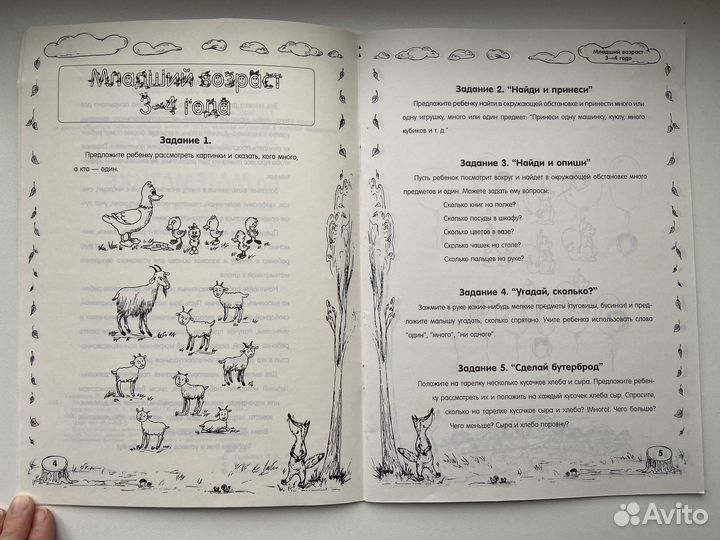 Младший возраст
3—4 года
Задание 1.
Предложите ребенку рассмотреть картинки и сказать, кого много,
а кто — один.
4
Младший возраст
3—4 года
Задание 2. "Найди и принеси"
Предложите ребенку найти в окружающей обстановке и принести много или
одну игрушку, много или один предмет: "Принеси одну машинку, куклу, много
кубиков и т. д."
Задание 3. "Найди и опиши"
Пусть ребенок посмотрит вокруг и найдет в окружающей обстановке много
предметов и один. Можете задать ему вопросы:
Сколько книг на полке?
Сколько посуды в шкафу?
Сколько цветов в вазе?
Сколько чашек на столе?
Сколько пальцев на руке?
Задание 4. "Угадай, сколько?"
Зажмите в руке какие-нибудь мелкие предметы (пуговицы, бусинки) и пред-
ложите малышу угадать, сколько спрятано. Учите ребенка использовать слова
"один", "много", "ни одного".
Задание 5. "Сделай бутерброд"
Положите на тарелку несколько кусочков хлеба и сыра. Предложите ребен-
ку рассмотреть их и положить на каждый кусочек хлеба сыр. Спросите,
сколько на тарелке кусочков сыра и хлеба? (Много). Чего больше?
Чего меньше? Сыра и хлеба поровну?
5
Avito